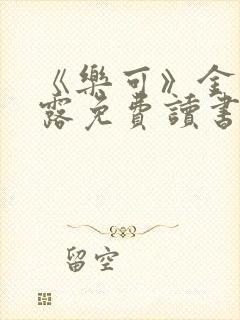 《樂可》全
露免費讀書
留空